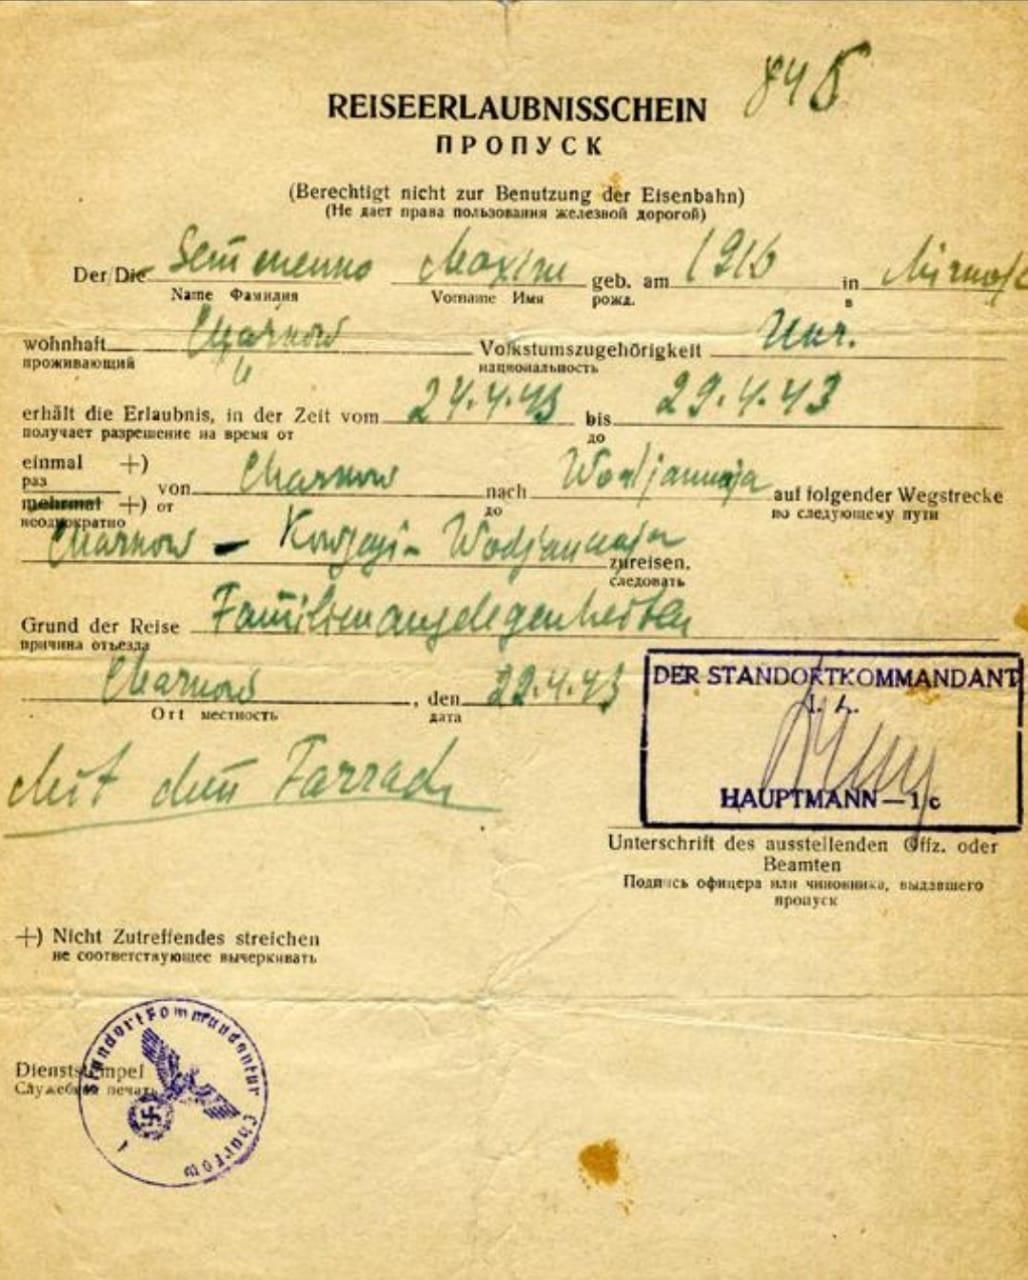 845
REISEERLAUBNISSCHEIN
ПРОПУСК
(Berechtigt nicht zur Benutzung der Eisenbahn)
(Не дает права пользования железной дорогой)
Der/Die geb. am 1916 in
Name Фамилия Vorname Имя рожд. в
wohnhaft Charkow Volkstumszugehörigkeit Ukr.
проживающий национальность
erhält die Erlaubnis, in der Zeit vom 24.4.43 bis 29.4.43
получает разрешение на время от до
einmal +)
раз
von Charkow nach Wodjannaja auf folgender Wegstrecke
mehrmal +) от до по следующему пути
неоднократно
Charkow – Wodjannaja zureisen.
следовать
Grund der Reise Familienangelegenheiten
причина отъезда
Charkow, den 22.4.43
Ort местность дата
DER STANDORTKOMMANDANT
HAUPTMANN — 1c
Mit dem Farrad
Unterschrift des ausstellenden Offz. oder
Beamten
Подпись офицера или чиновника, выдавшего
пропуск
+) Nicht Zutreffendes streichen
не соответствующее вычеркивать
Dienststempel
Служебная печать
Standortkommandantur Charkow